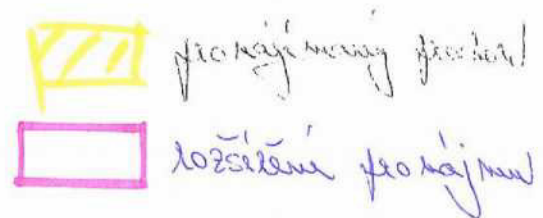 pronajímaný prostor
rozšíření pronájmu